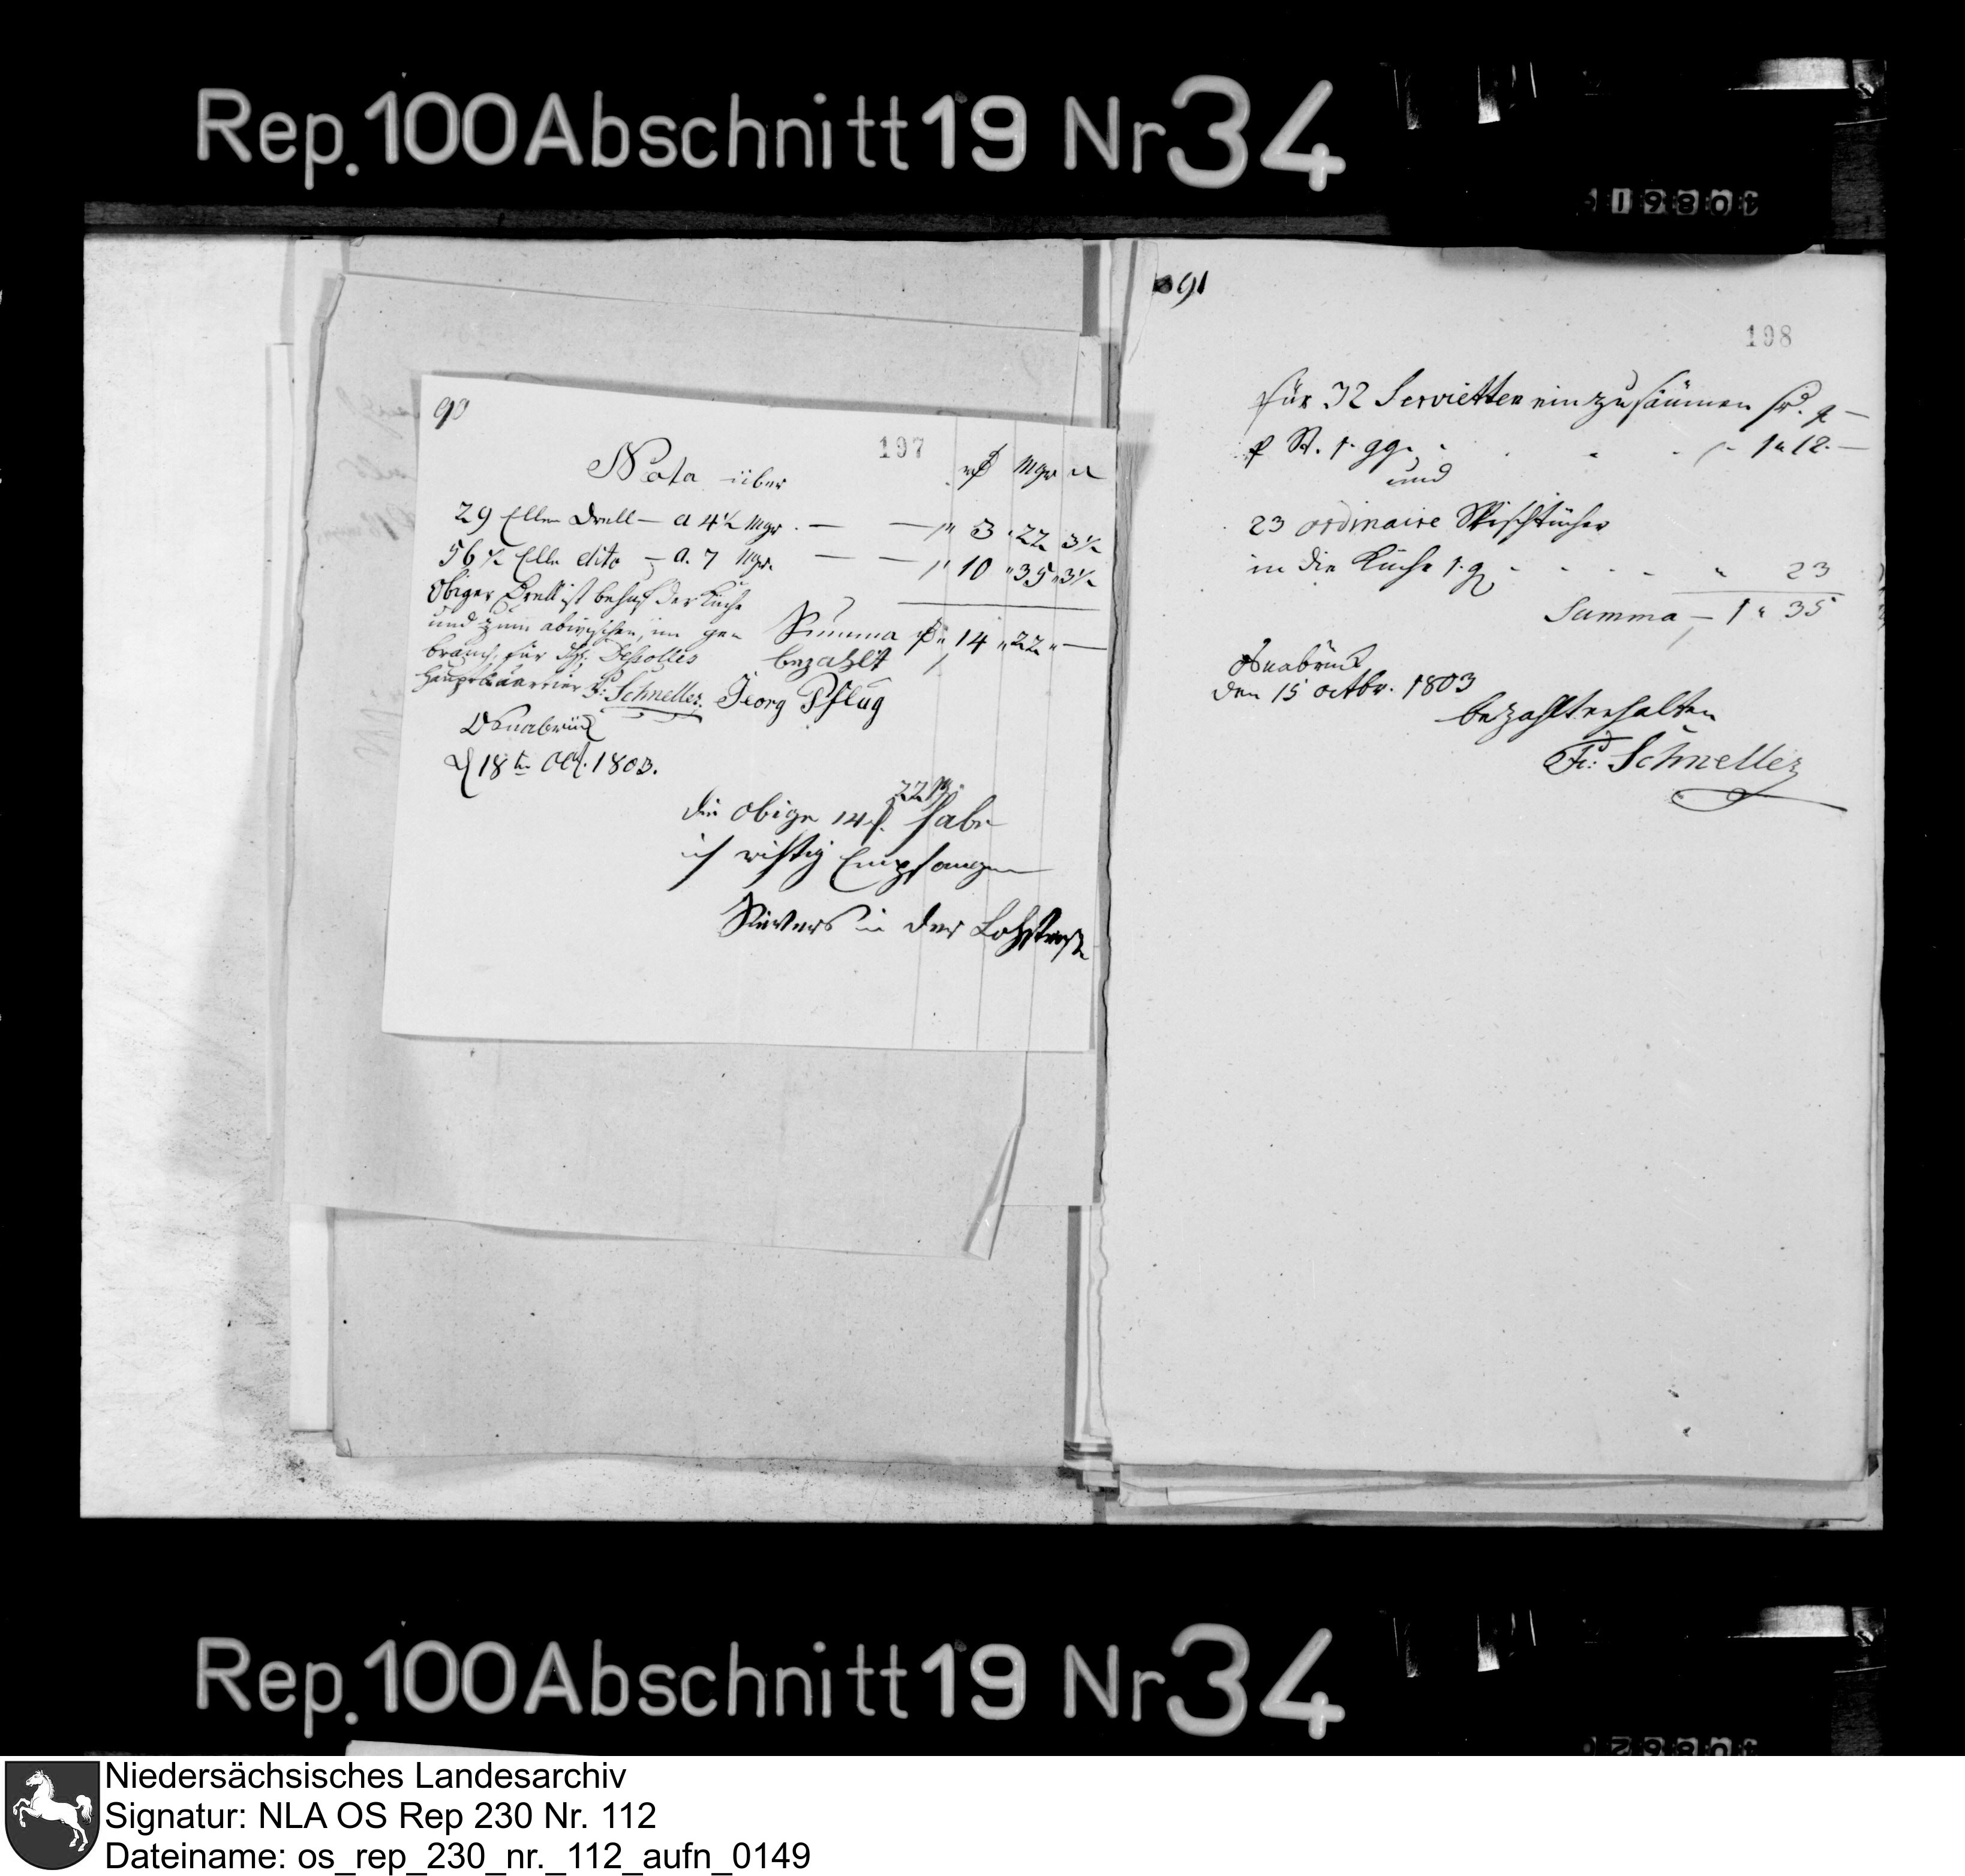 Rep. 100 Abschnitt 19 Nr 34
90
197
Nota über
Mgr
29 Ellen Drell — a 4½ Mgr. — — 3 „ 22 3½
56½ Elle dito — a. 7 Mgr. — — 10 „ 35 „ 3½
Obiger Drell ist behuf der Küche
und zum abwischen, im ge
brauch, für Dessolles
Hauptquartier Fr: Schneller.
Summa 14 „ 22 „ —
bezahlt
Georg Pflug
Osnabrück
d 18ten Oct. 1803.
22 Mg.
die obige 14 habe
ich richtig Empfangen
Sievers in der Lohstraße
91
198
für 32 Servietten einzusäumen
p St. 1. gg. 1 „ 12. —
und
23 ordinaire Wischtücher
in die Küche 1. g „ 23
Summa — 1 „ 35
Osnabrück
den 15 octbr. 1803
bezahlt erhalten
Fr: Schneller
Rep. 100 Abschnitt 19 Nr 34
Niedersächsisches Landesarchiv
Signatur: NLA OS Rep 230 Nr. 112
Dateiname: os_rep_230_nr._112_aufn_0149